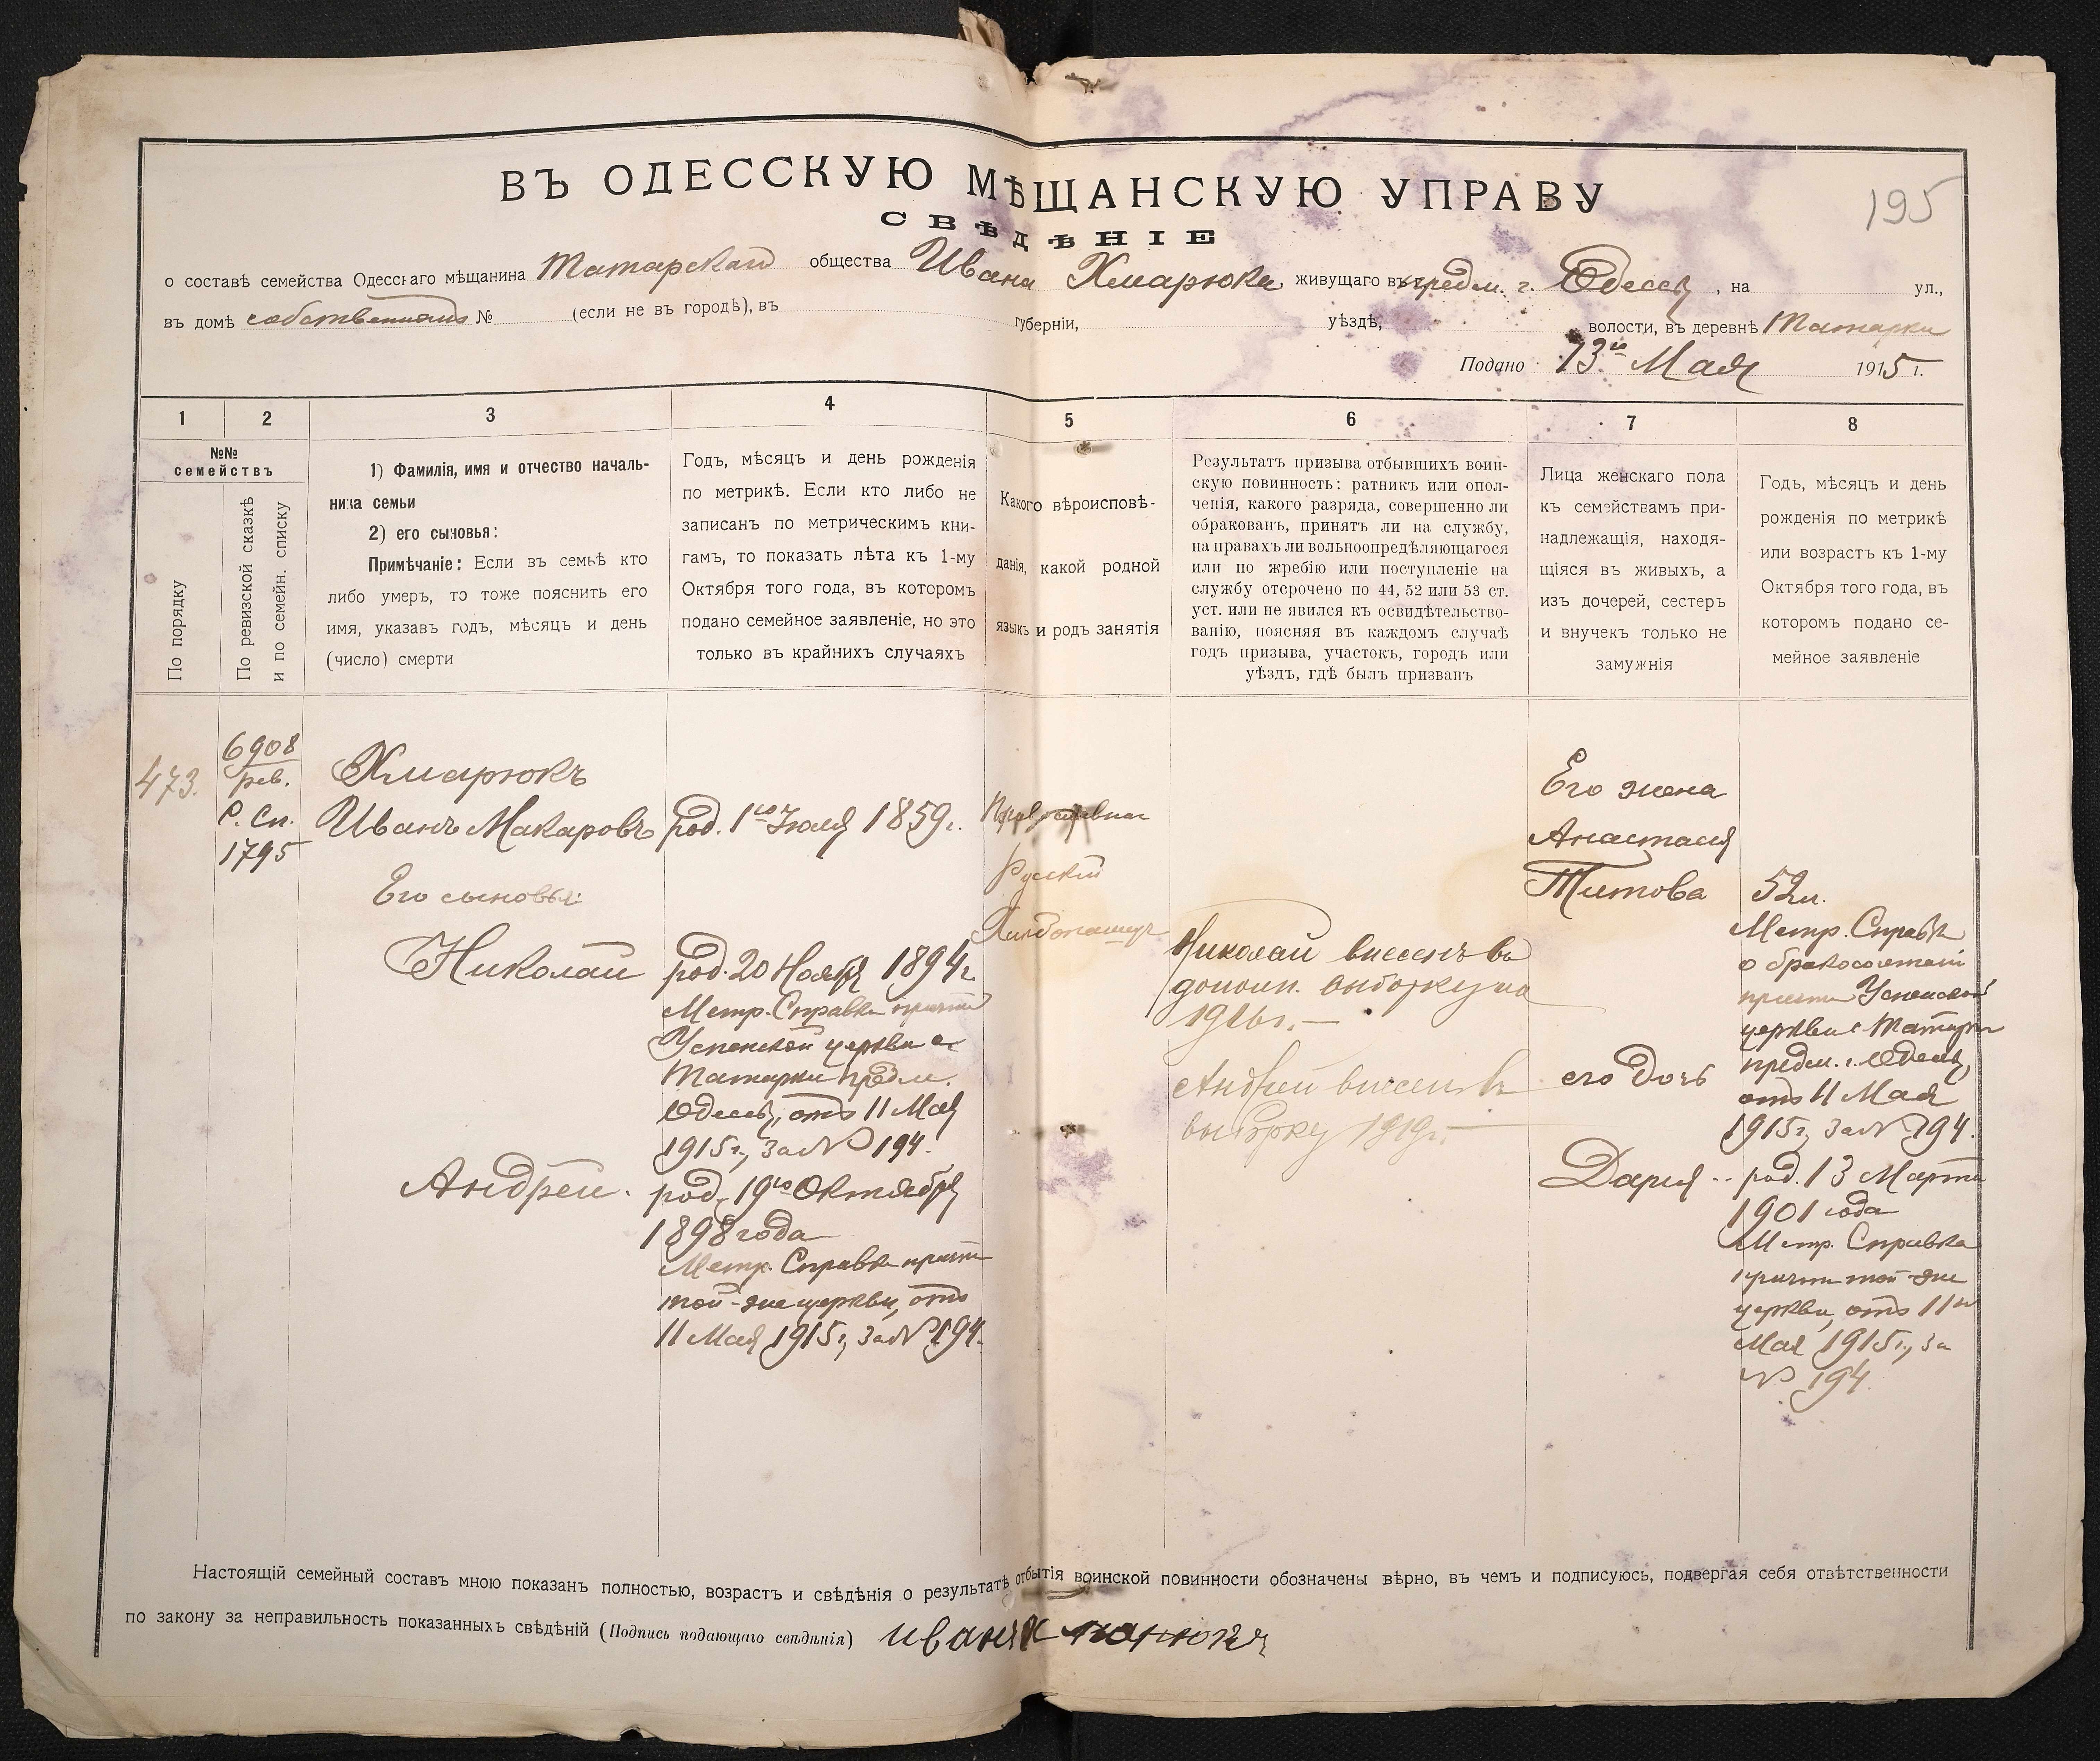 195
ВЪ ОДЕССКУЮ МѢЩАНСКУЮ УПРАВУ
СВѢДѢНІЕ
о составѣ семейства Одесскаго мѣщанина Татарскаго общества Ивана Хмарюка, живущаго въ предм. г. Одессы, на ул.,
въ домѣ собственномъ № (если не въ городѣ), въ губерніи, уѣздѣ, волости, въ деревнѣ Татарки
Подано 13го Мая 1915 г.
1 2 3 4 5 6 7 8
№№
семействъ
По порядку
По ревизской сказкѣ
и по семейн. списку
1) Фамилія, имя и отчество началь-
ника семьи
2) его сыновья:
Примѣчаніе: Если въ семьѣ кто
либо умеръ, то тоже пояснить его
имя, указавъ годъ, мѣсяцъ и день
(число) смерти
Годъ, мѣсяцъ и день рожденія
по метрикѣ. Если кто либо не
записанъ по метрическимъ кни-
гамъ, то показать лѣта къ 1-му
Октября того года, въ которомъ
подано семейное заявленіе, но это
только въ крайнихъ случаяхъ
Какого вѣроисповѣ-
данія, какой родной
языкъ и родъ занятія
Результатъ призыва отбывшихъ воин-
скую повинность: ратникъ или опол-
ченія, какого разряда, совершенно ли
обракованъ, принятъ ли на службу,
на правахъ ли вольноопредѣляющагося
или по жребію или поступленіе на
службу отсрочено по 44, 52 или 53 ст.
уст. или не явился къ освидѣтельство-
ванію, поясняя въ каждомъ случаѣ
годъ призыва, участокъ, городъ или
уѣздъ, гдѣ былъ призванъ
Лица женскаго пола
къ семействамъ при-
надлежащія, находя-
щіяся въ живыхъ, а
изъ дочерей, сестеръ
и внучекъ только не
замужнія
Годъ, мѣсяцъ и день
рожденія по метрикѣ
или возрастъ къ 1-му
Октября того года, въ
которомъ подано се-
мейное заявленіе
473.
6908
рев.
С. Сп.
1795
Хмарюкъ
Иванъ Макаровъ
Его сыновья:
Николай
Андрей.
род. 1го Іюля 1859 г.
род. 20 Ноября 1894 г.
Метр. Справка причта
Успенской церкви с.
Татарки предм.
Одессы, отъ 11 Мая
1915 г., за № 194.
род. 19го Октября
1898 года
Метр. Справка причта
той-же церкви, отъ
11 Мая 1915 г., за № 194.
Православная
Русскій
Хлѣбопашецъ
Николай внесенъ въ
дополн. выборку на
1916 г.
Андрей внесенъ въ
выборку 1919 г.
Его жена
Анастасія
Титова
его дочь
Дарія
52 л.
Метр. Справка
о бракосочетаніи
причта Успенской
церкви с. Татарки
предм. г. Одессы,
отъ 11 Мая
1915 г., за № 194.
род. 13 Марта
1901 года
Метр. Справка
причта той-же
церкви, отъ 11го
Мая 1915 г., за
№ 194.
Настоящій семейный составъ мною показанъ полностью, возрастъ и свѣдѣнія о результатѣ отбытія воинской повинности обозначены вѣрно, въ чемъ и подписуюсь, подвергая себя отвѣтственности
по закону за неправильность показанныхъ свѣдѣній (Подпись подающаго свѣдѣнія) иванъ